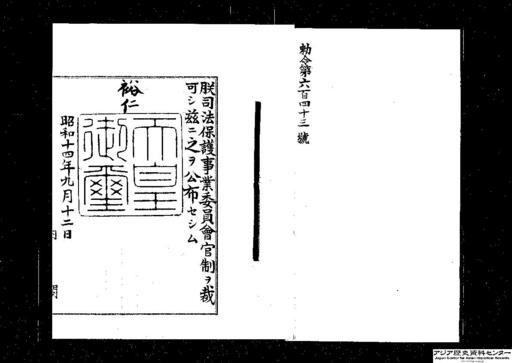 勅令第六百四十三號
朕司法保護事業委員會官制ヲ裁
可シ茲ニ之ヲ公布セシム
裕仁
天皇
御璽
昭和十四年九月十二日
内閣
アジア歴史資料センター
Japan Center for Asian Historical Records